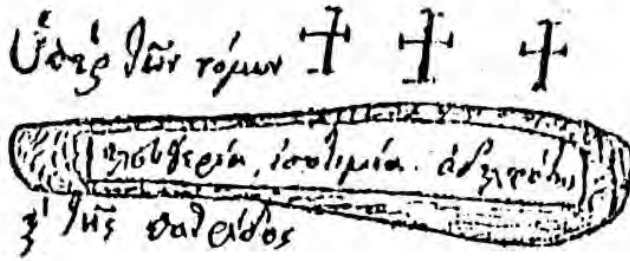 Ὑπέρ τῶν νόμων
ἐλευθερία, ἰσοτιμία. ἀδελφότης
ϗ τῆς πατρίδος